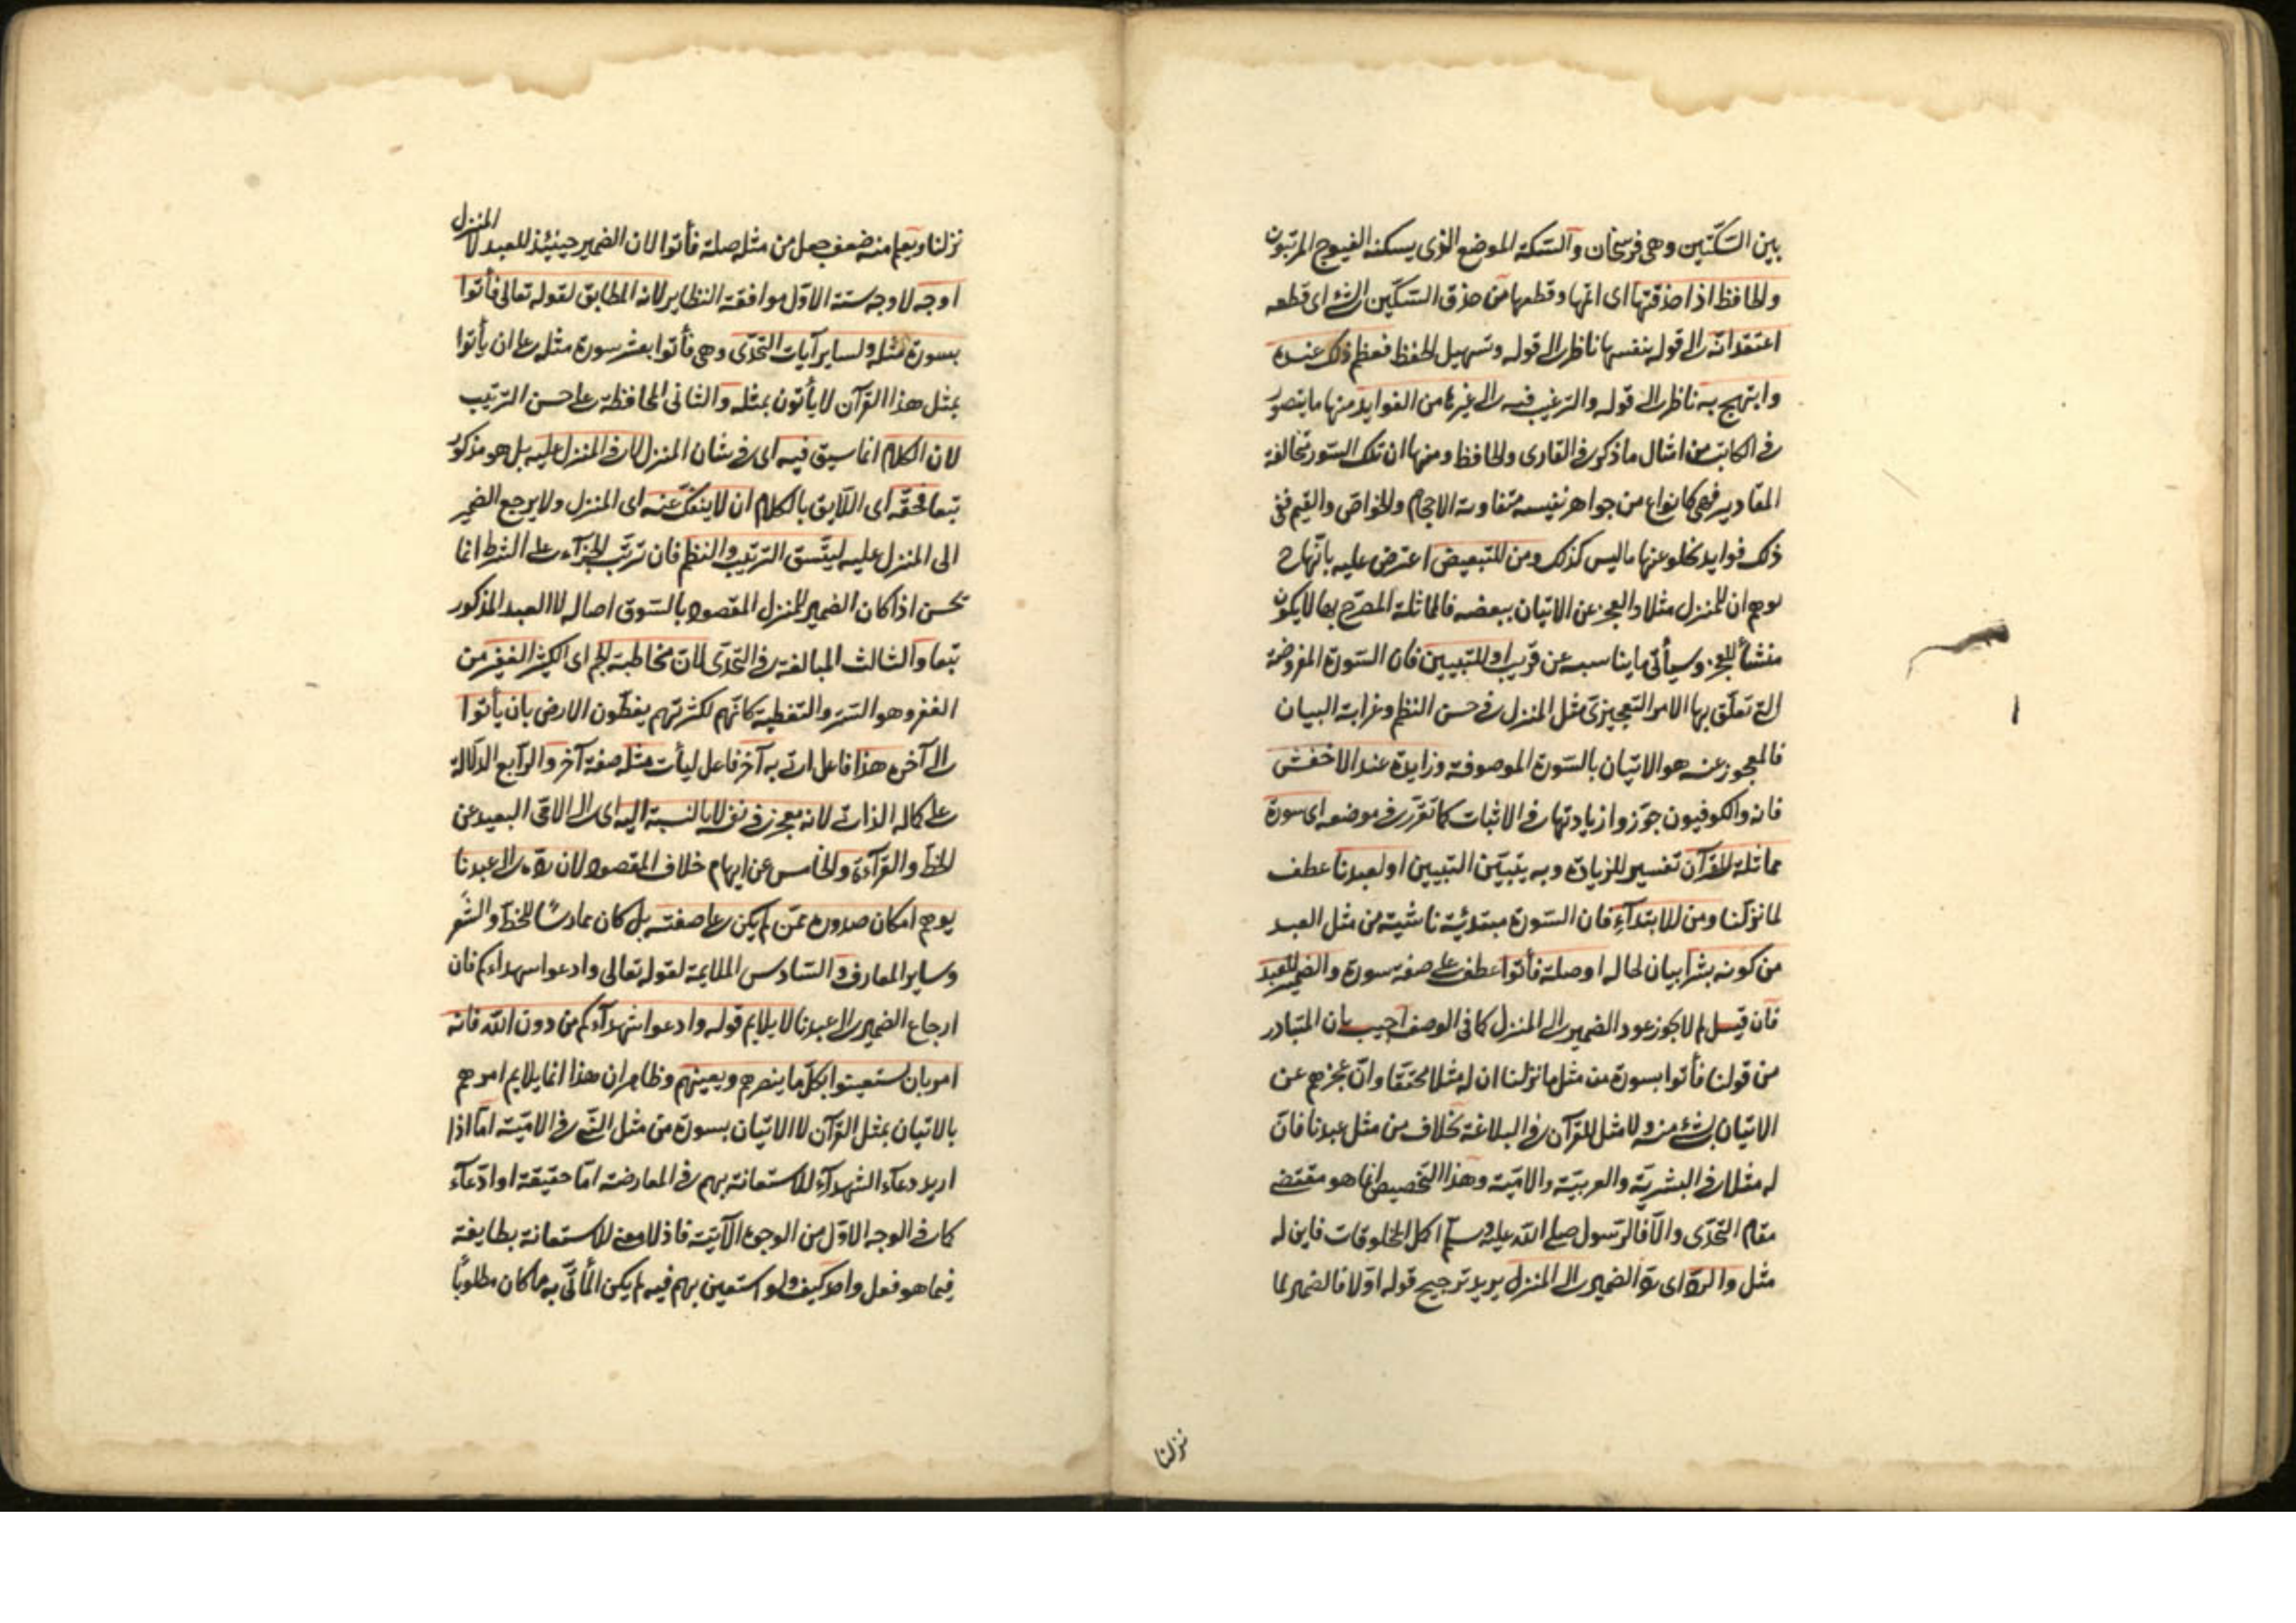 بين السكّتين وهى فرسخان والسكة الموضع الذى يسكنه الفيوج المرتبون
والحافظ اذا حذقها اى اتمها وقطعها من حذق السكّين الشئ اى قطعه
اعتقد انه الى قوله بنفسها ناظر الى قوله وتسهيل الحفظ فعظم ذلك عنده
وابتهج به ناظر الى قوله والترغيب فيه الى غيرها من الفوايد منها ما يتصور
فى الكاتب من امثال ما ذكر فى القارى والحافظ ومنها ان تلك السّور متخالفة
المقادير فهى كانواع من جواهر نفيسه متفاوتة الاحجام والخواصّ والقيم ففى
ذلك فوايد تخلو عنها ما ليس كذلك ومن للتبعيض اعترض عليه بانّها ح
يوهم ان للمنزل مثلا والعجز عن الاتيان ببعضه فالماثلة المصرّح بها لا يكون
منشأ للعجز وسيأتى ما يناسبه عن قريب او للتبيين فان السّورة المفروضة
التى تعلّق بها الامر التعجيزىّ مثل المنزل فى حسن النظم وغرابة البيان
فالمعجوز عنه هو الاتيان بالسّورة الموصوفة وزايدة عند الاخفش
فانه والكوفيون جوّزوا زيادتها فى الاثبات كما تقرّر فى موضعه اى سورة
مماثلة للقرآن تفسير للزيادة وبه يتبيّن التبيين او لعبدنا عطف
لما نزّلنا ومن للابتدآء فان السّورة مبتدئة ناشية من مثل العبد
من كونه بشرا بيان لحاله او صلة فأتوا عطف على صفة سورة والضمير للعبد
فان قيل لم لا يجوز عود الضمير الى المنزل كما فى الوصف اجيب بان المتبادر
من قولنا فأتوا بسورة من مثل ما نزلنا ان له مثلا محققا وانّ عجزهم عن
الاتيان بشئ منه ولا مثل للقرآن فى البلاغة بخلاف من مثل عبدنا فانّ
له مثلا فى البشريّة والعربيّة والاميّة وهذا التخصيص انما هو مقتضى
مقام التحدّى والّا فالرّسول صلى الله عليه وسلم اكمل المخلوقات فاين له
مثل والردّ اى ردّ الضمير الى المنزل يريد ترجيح قوله اوّلا فالضمير لما
نزلنا
نزلنا ويعلم منه ضعف جعل من مثله صلة فأتوا لان الضمير حينئذ للعبد لا المنزل
اوجه لاوجه ستة الاوّل موافقة النظاير لانه المطابق لقوله تعالى فأتوا
بسورة مثله ولساير آيات التحدّى وهى فأتوا بعشر سورة مثله على ان يأتوا
بمثل هذا القرآن لا يأتون بمثله والثانى المحافظة على حسن الترتيب
لان الكلام انما سيق فيه اى فى شان المنزل لا فى المنزل عليه بل هو مذكور
تبعا فحقّه اى اللّايق بالكلام ان لا ينفكّ عنه اى المنزل ولا يرجع الضمير
الى المنزل عليه ليتّسق الترتيب والنظم فان ترتّب الجزآء على الشرط انما
يحسن اذا كان الضمير للمنزل المقصود بالسّوق اصالة لا العبد المذكور
تبعا والثالث المبالغة فى التحدّى لانّ مخاطبة الجم اى الكثير الغفير من
الغفر وهو الستر والتغطية كانّهم لكثرتهم يغطّون الارض بان يأتوا
الى آخره هذا فاعل اتى به آخر فاعل ليأت مثله صفة آخر والرّابع الدلالة
على كماله الذاتى لانه معجز فى نفسه لا بالنسبة اليه اى الى الامّى البعيد عن
الخطّ والقرآءة والخامس عن ايهام خلاف المقصود لان ردّه الى عبدنا
يوهم امكان صدوره عمّن لم يكن على صفته بل كان ممارسًا للخطّ والشّعر
وساير المعارف والسّادس الملايمة لقوله تعالى وادعوا شهداءكم فان
ارجاع الضمير الى عبدنا لا يلايم قوله وادعوا شهدآءكم من دون الله فانه
امر بان يستعينوا بكلّ ما ينصرهم ويعينهم وظاهر ان هذا انما يلايم امرهم
بالاتيان بمثل القرآن لا الاتيان بسورة من مثل النّبى فى الاميّة امّا اذا
اريد دعآء الشهدآء للاستعانة بهم فى المعارضة امّا حقيقة او ادّعآء
كما فى الوجه الاوّل من الوجوه الآتية فاذ لا معنى للاستعانة بطايفة
فيما هو فعل واحد كيف ولو استعين بهم فيه لم يكن المأتىّ به ما كان مطلوبًا